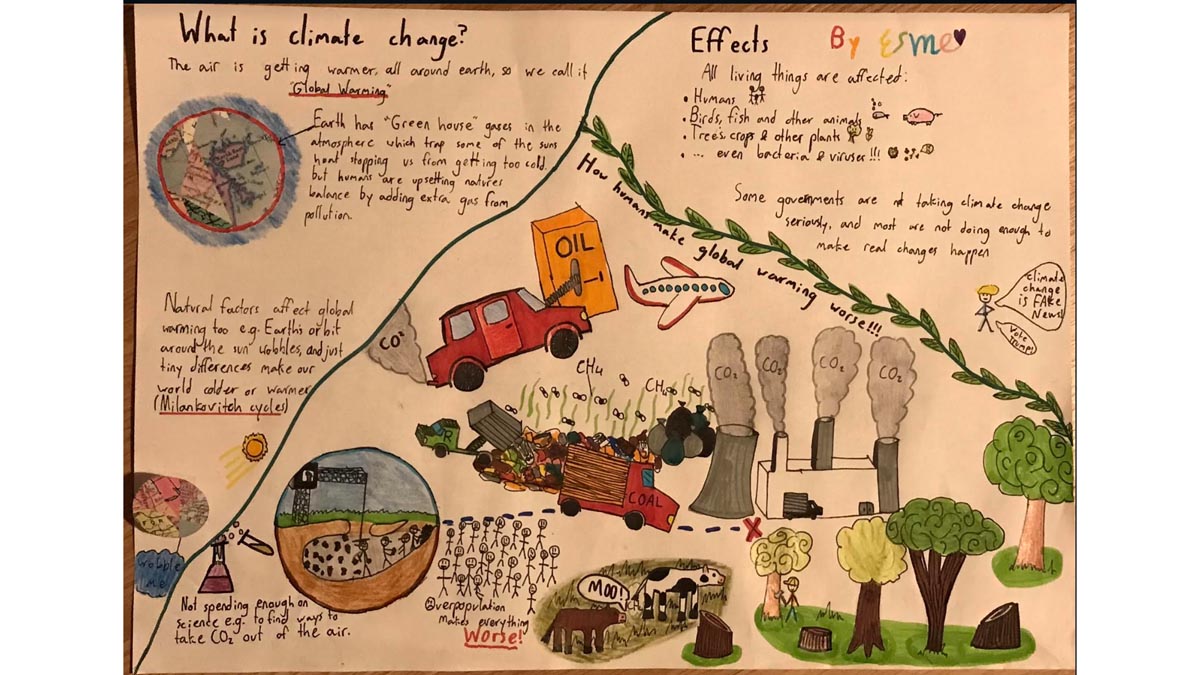 What is climate change?
The air is getting warmer, all around earth, so we call it
"Global Warming"
Earth has "Green house" gases in the
atmosphere which trap some of the suns
heat stopping us from getting too cold
but humans are upsetting natures
balance by adding extra gas from
pollution.
Natural factors affect global
warming too e.g. Earth's orbit
around the sun wobbles, and just
tiny differences make our
world colder or warmer
(Milankovitch cycles)
wobble
me
Not spending enough on
science e.g. to find ways to
take CO2 out of the air.
Effects
By Esme
All living things are affected:
• Humans
• Birds, fish and other animals
• Trees, crops & other plants
• ... even bacteria & viruses!!!
Some governments are not taking climate change
seriously, and most are not doing enough to
make real changes happen
Climate
change
is FAKE
News!
Vote
Trump!
How humans make global warming worse!!!
OIL
CO2
CH4
CH4
CO2
CO2
CO2
CO2
R
COAL
X
Overpopulation
makes everything
Worse!
MOO!